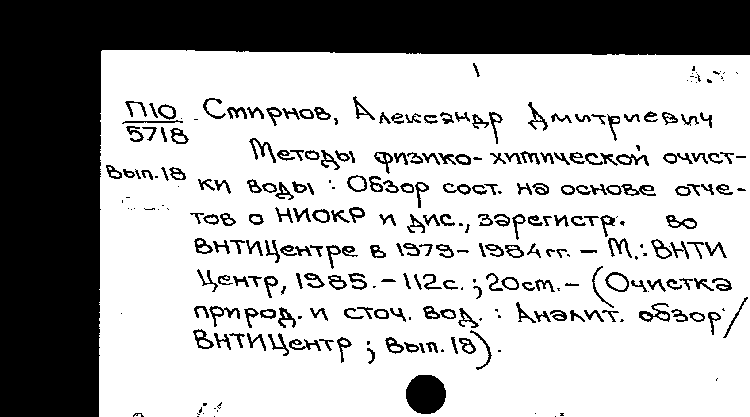 П10 Смирнов, Александр Дмитриевич
5718
Методы физико-химической очист-
Вып.18 ки воды : Обзор сост. на основе отче-
тов о НИОКР и дис., зарегистр. во
ВНТИЦентре в 1979-1984 гг. – М.: ВНТИ
Центр, 1985. – 112с. ; 20см. – (Очистка
природ. и сточ. вод. : Аналит. обзор /
ВНТИЦентр ; Вып. 18).